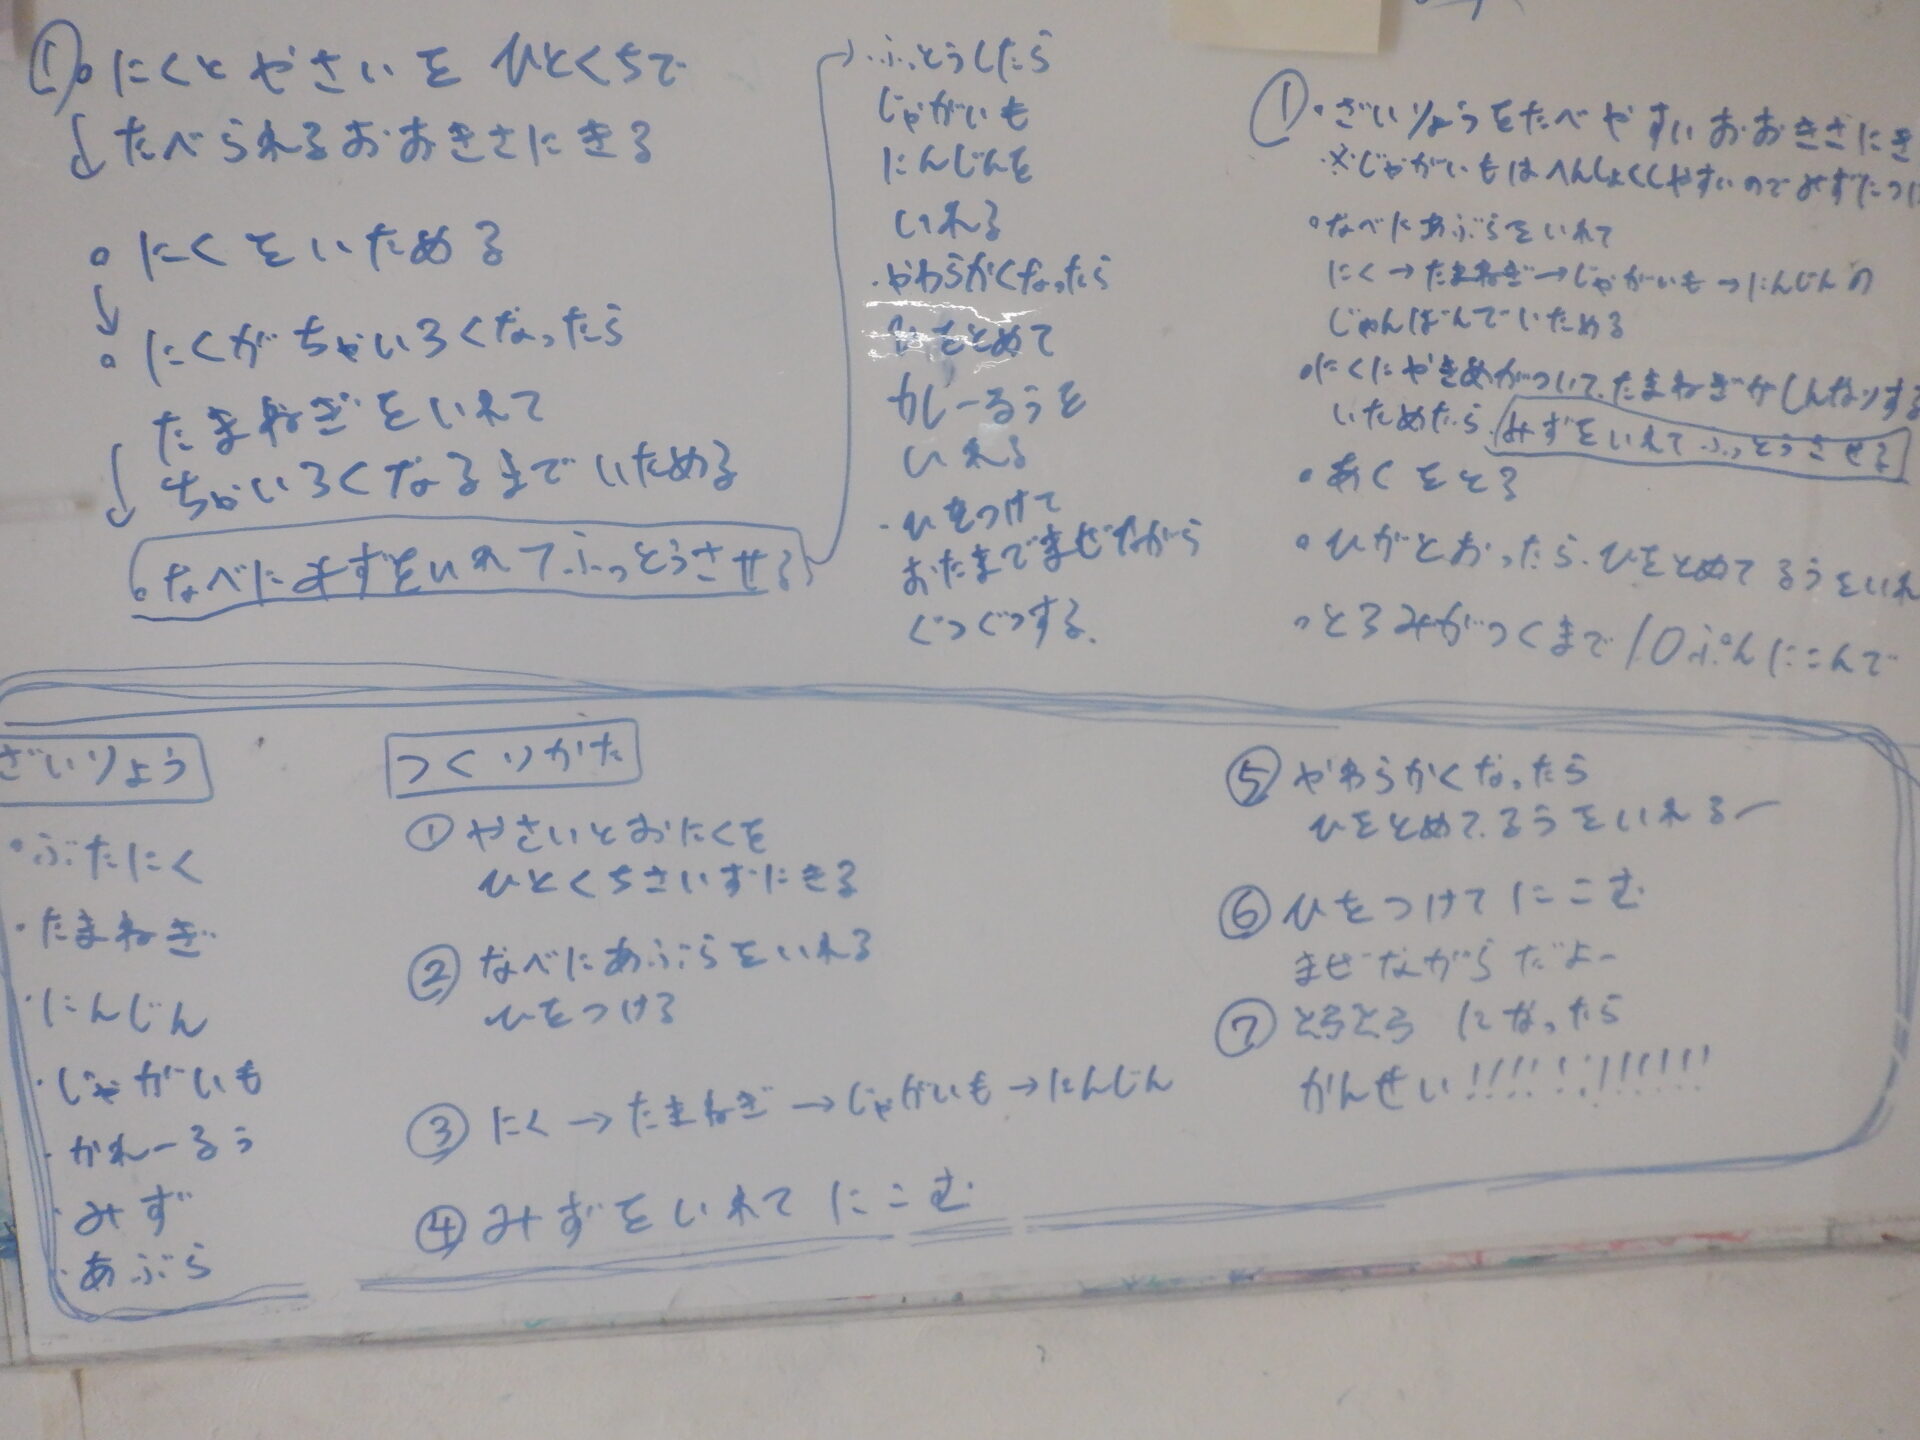 ① にくとやさいをひとくちで
たべられるおおきさにきる
にくをいためる
にくがちゃいろくなったら
たまねぎをいれて
ちゃいろくなるまでいためる
なべにみずをいれてふっとうさせる
ふっとうしたら
じゃがいも
にんじんを
いれる
やわらかくなったら
ひをとめて
かれーるうを
いれる
ひをつけて
おたまでまぜながら
ぐつぐつする。
① ざいりょうをたべやすいおおきさにき
※じゃがいもはへんしょくしやすいのでみずにつけ
なべにあぶらをいれて
にく→たまねぎ→じゃがいも→にんじんの
じゅんばんでいためる
にくにやきめがついて、たまねぎがしんなりする
いためたら、みずをいれてふっとうさせる
あくをとる
ひがとおったら、ひをとめてるうをいれ
とろみがつくまで10ぷんにこんで
ざいりょう
・ぶたにく
・たまねぎ
・にんじん
・じゃがいも
・かれーるう
・みず
・あぶら
つくりかた
① やさいとおにくを
ひとくちさいずにきる
② なべにあぶらをいれる
ひをつける
③ にく→たまねぎ→じゃがいも→にんじん
④ みずをいれてにこむ
⑤ やわらかくなったら
ひをとめて、るうをいれるー
⑥ ひをつけてにこむ
まぜながらだよー
⑦ とろとろになったら
かんせい!!!!!!!!!!!!